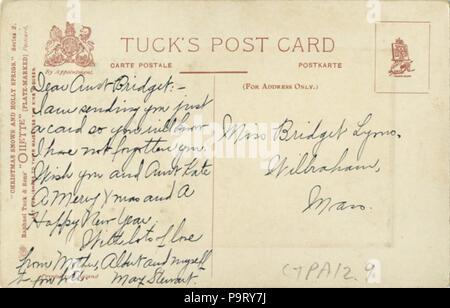 "CHRISTMAS SNOWS AND HOLLY SPRIGS." Series 2.
"OILETTE" [PLATE-MARKED] Postcard.
Raphael Tuck & Sons'
By Appointment.
TUCK'S POST CARD
CARTE POSTALE
POSTKARTE
(FOR ADDRESS ONLY.)
Dear Aunt Bridget:-
I am sending you just
a card so you will know
I have not forgotten you.
Wish you and Aunt Kate
A Merry Xmas and A
Happy New Year.
With lots of love
from Mother, Albert and myself
Max Stewart.
Miss Bridget Lyons.
Wilbraham,
Mass.
CTPA12.9
alamy
Image ID: P9RY7J
www.alamy.com